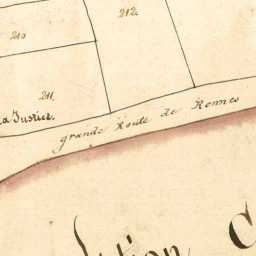 212.
210
211.
la Justice.
grande Route de Rennes
Section C